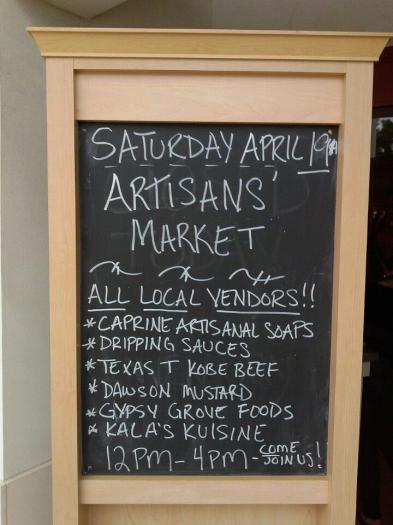 SATURDAY APRIL 19th
ARTISANS'
MARKET
ALL LOCAL VENDORS!!
* CAPRINE ARTISANAL SOAPS
* DRIPPING SAUCES
* TEXAS T KOBE BEEF
* DAWSON MUSTARD
* GYPSY GROVE FOODS
* KALA'S KUISINE
12PM - 4PM - COME JOIN US!